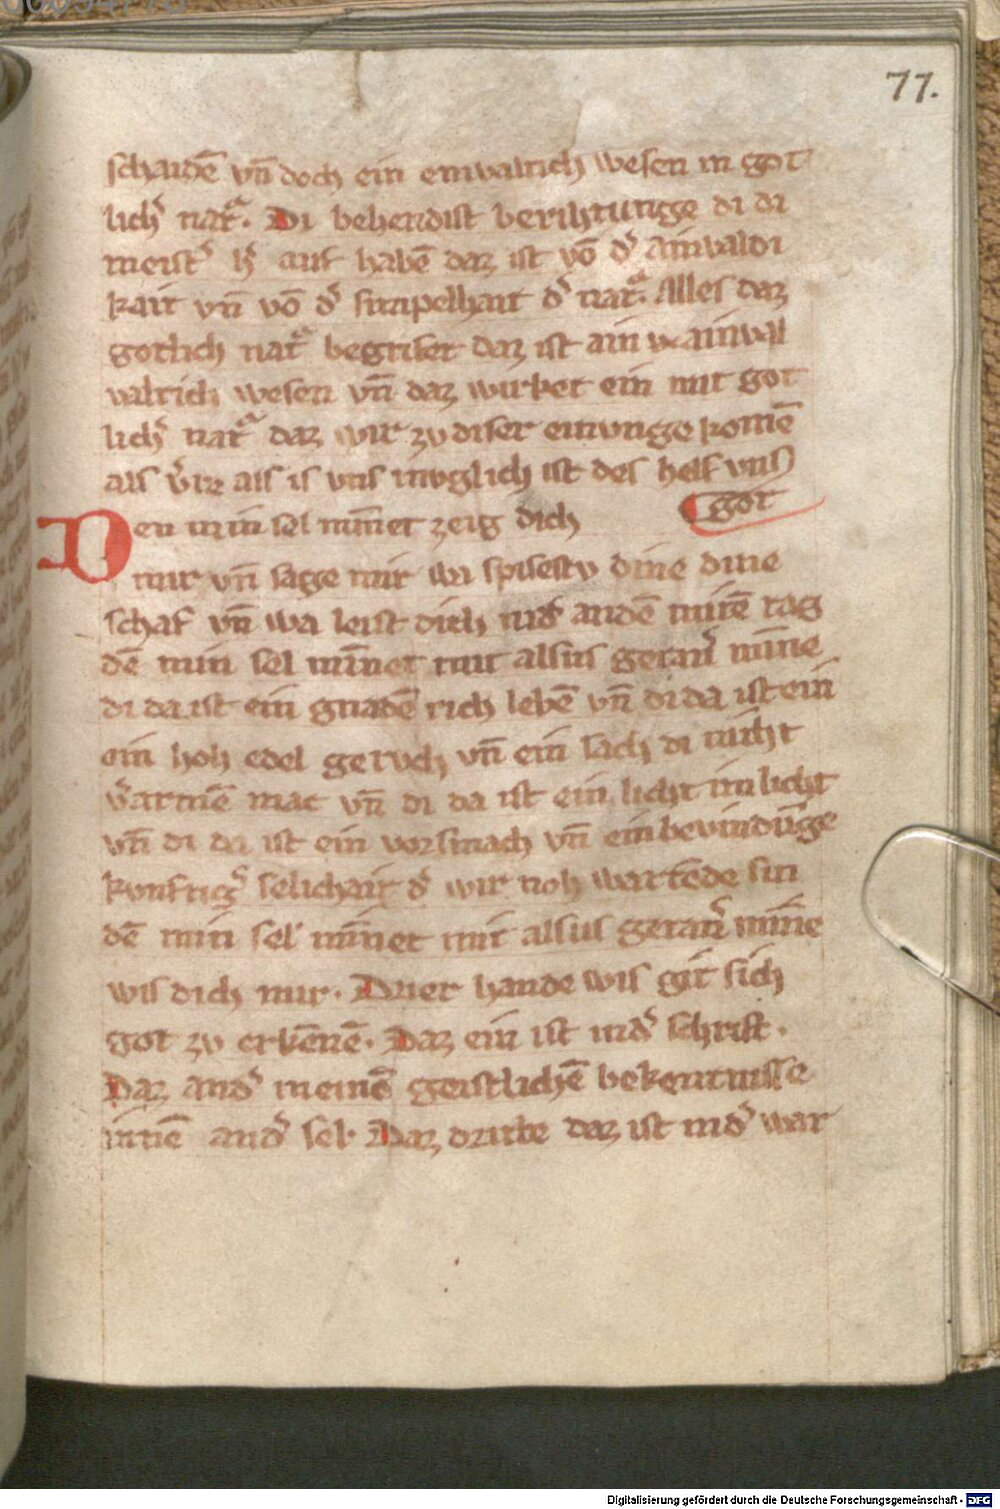 77.
schaidē vn̄ doch ein einvaltich wesen in got
lich͛ natͣ. Di behendist berihtunge di di
meist͛ h͛ auf habē daz ist vō d͛ ainvaldi
kait vn̄ vō d͛ simpelhait d͛ natͣ. Alles daz
gotlich natͣ begrifet daz ist ain ainval
valtich wesen vn̄ daz wirket ein mit got
lich͛ natͣ daz wir zv diser einvnge komē
als v͛re als is vns mvglich ist des helf vns
got
Den min sel minnet zeig dich
mir vn̄ sage mir wa spisestv dine dine
schaf vn̄ wa leist dich nid͛ an dē mitē tag
dē min sel mīnet mit alsus getan͛ minne
di da ist ein gnadē rich lebē vn̄ di da ist ein
ein hoh edel gervch vn̄ ein sach di niht
v͛armē mac vn̄ di da ist ein licht im licht
vn̄ di da ist ein vorsmach vn̄ ein bevindūge
kvnftig͛ selichait d͛ wir noh wartēde sin
dē min sel minnet mit alsus getan͛ minne
wis dich mir. Drier hande wis git sich
got zv erkēnē. Daz ein ist in d͛ schrift.
Daz and͛ in einē geistlichē bekentnisse
innē an d͛ sel. Daz dritte daz ist in d͛ war
Digitalisierung gefördert durch die Deutsche Forschungsgemeinschaft - DFG